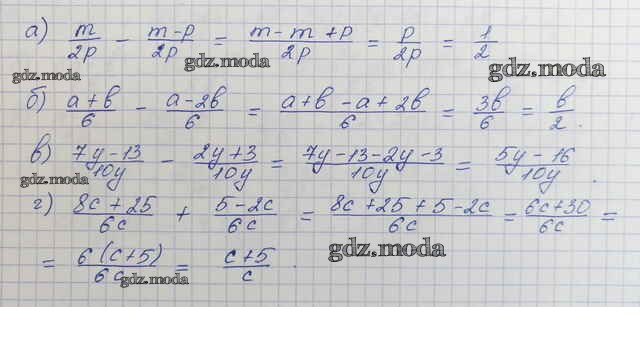 а) m/2p - m-p/2p = m-m+p/2p = p/2p = 1/2
gdz.moda
gdz.moda
gdz.moda
б) a+b/6 - a-2b/6 = a+b-a+2b/6 = 3b/6 = b/2.
в) 7y-13/10y - 2y+3/10y = 7y-13-2y-3/10y = 5y-16/10y.
gdz.moda
г) 8c+25/6c + 5-2c/6c = 8c+25+5-2c/6c = 6c+30/6c =
gdz.moda
= 6(c+5)/6c = c+5/c.
gdz.moda